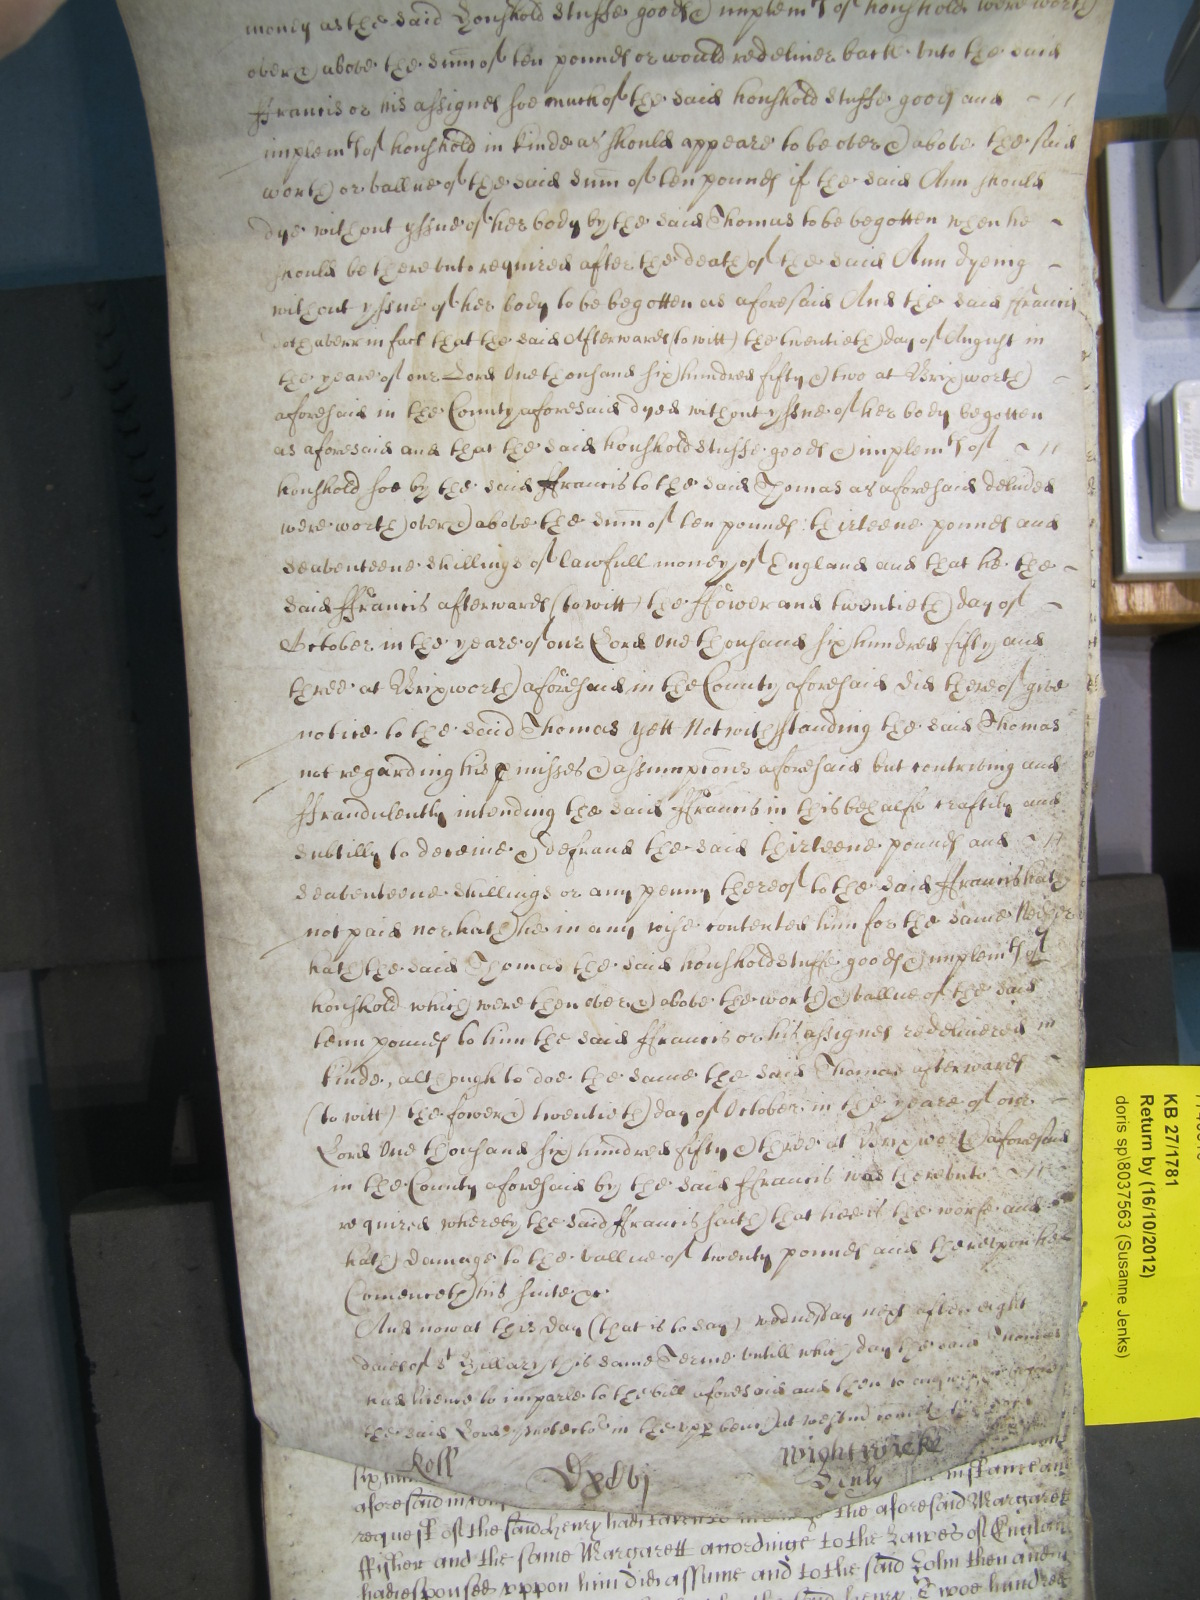 money as the said houshold stuffe goods & implemts of houshold were worth
over & above the sum̄ of ten pounds or would redeliver back vnto the said
ffrancis or his assignes soe much of the said houshold stuffe goods and
implemts of houshold in kinde as should appeare to be over & above the said
worth or vallue of the said sum̄ of ten pounds if the said Ann should
dye without yssue of her body by the said Thomas to be begotten when he
should be therevnto required after the death of the said Ann dyeing
without yssue of her body to be begotten as aforesaid And the said ffrancis
doth averr in fact that the said Afterwards (to witt) the twentieth day of August in
the yeare of our Lord One thousand six hundred fifty & two at Brixworth
aforesaid in the County aforesaid dyed without yssue of her body begotten
as aforesaid and that the said houshold stuffe goods & implemts of
houshold soe by the said ffrancis to the said Thomas as aforesaid deliued
were worth over & above the sum̄ of ten pounds thirteene pounds and
seaventeene shillings of lawfull money of England and that he the
said ffrancis afterwards (to witt) the ffower and twentieth day of
October in the yeare of our Lord One thousand six hundred fifty and
three at Brixworth aforesaid in the County aforesaid did thereof give
notice to the said Thomas yett Notwithstanding the said Thomas
not regarding his p̱misses & assumpc̄ons aforesaid but contriving and
ffraudulently intending the said ffrancis in this behalfe craftily and
subtilly to deceive & defraud the said thirteene pounds and
seaventeene shillings or any penny thereof to the said ffrancis hath
not paid nor hath he in any wise contented him for the same Neither
hath the said Thomas the said houshold stuffe goods & implemts of
houshold which were then over & above the worth & vallue of the said
tenn pounds to him the said ffrancis or his assignes redelivered in
kinde, although to doe the same the said Thomas afterwards
(to witt) the fower & twentieth day of October in the yeare of our
Lord One thousand six hundred fifty & three at Brixworth aforesaid
in the County aforesaid by the said ffrancis was therevnto
required whereby the said ffrancis saith that hee is the worse and
hath damage to the vallue of twenty pounds and therevpon hee
Comenceth his suite &c
And now at this day (that is to say) wednesday next after eight
daies of St Hillary this same Terme vntill which day the said Thomas
had licence to imparle to the bill aforesaid and then to answer
the said Lord Protector in the vpp̱ bench at westm̄
Roll
Dxxvj
Wightwicke
Henly
aforesaid
request of the said henry had the aforesaid Margarett
ffisher and the same Margarett accordinge to the Lawes of England
had espoused vppon him did assume and to the said John then and
henry Twoe hundred
KB 27/1781
Return by (16/10/2012)
doris sp\8037563 (Susanne Jenks)